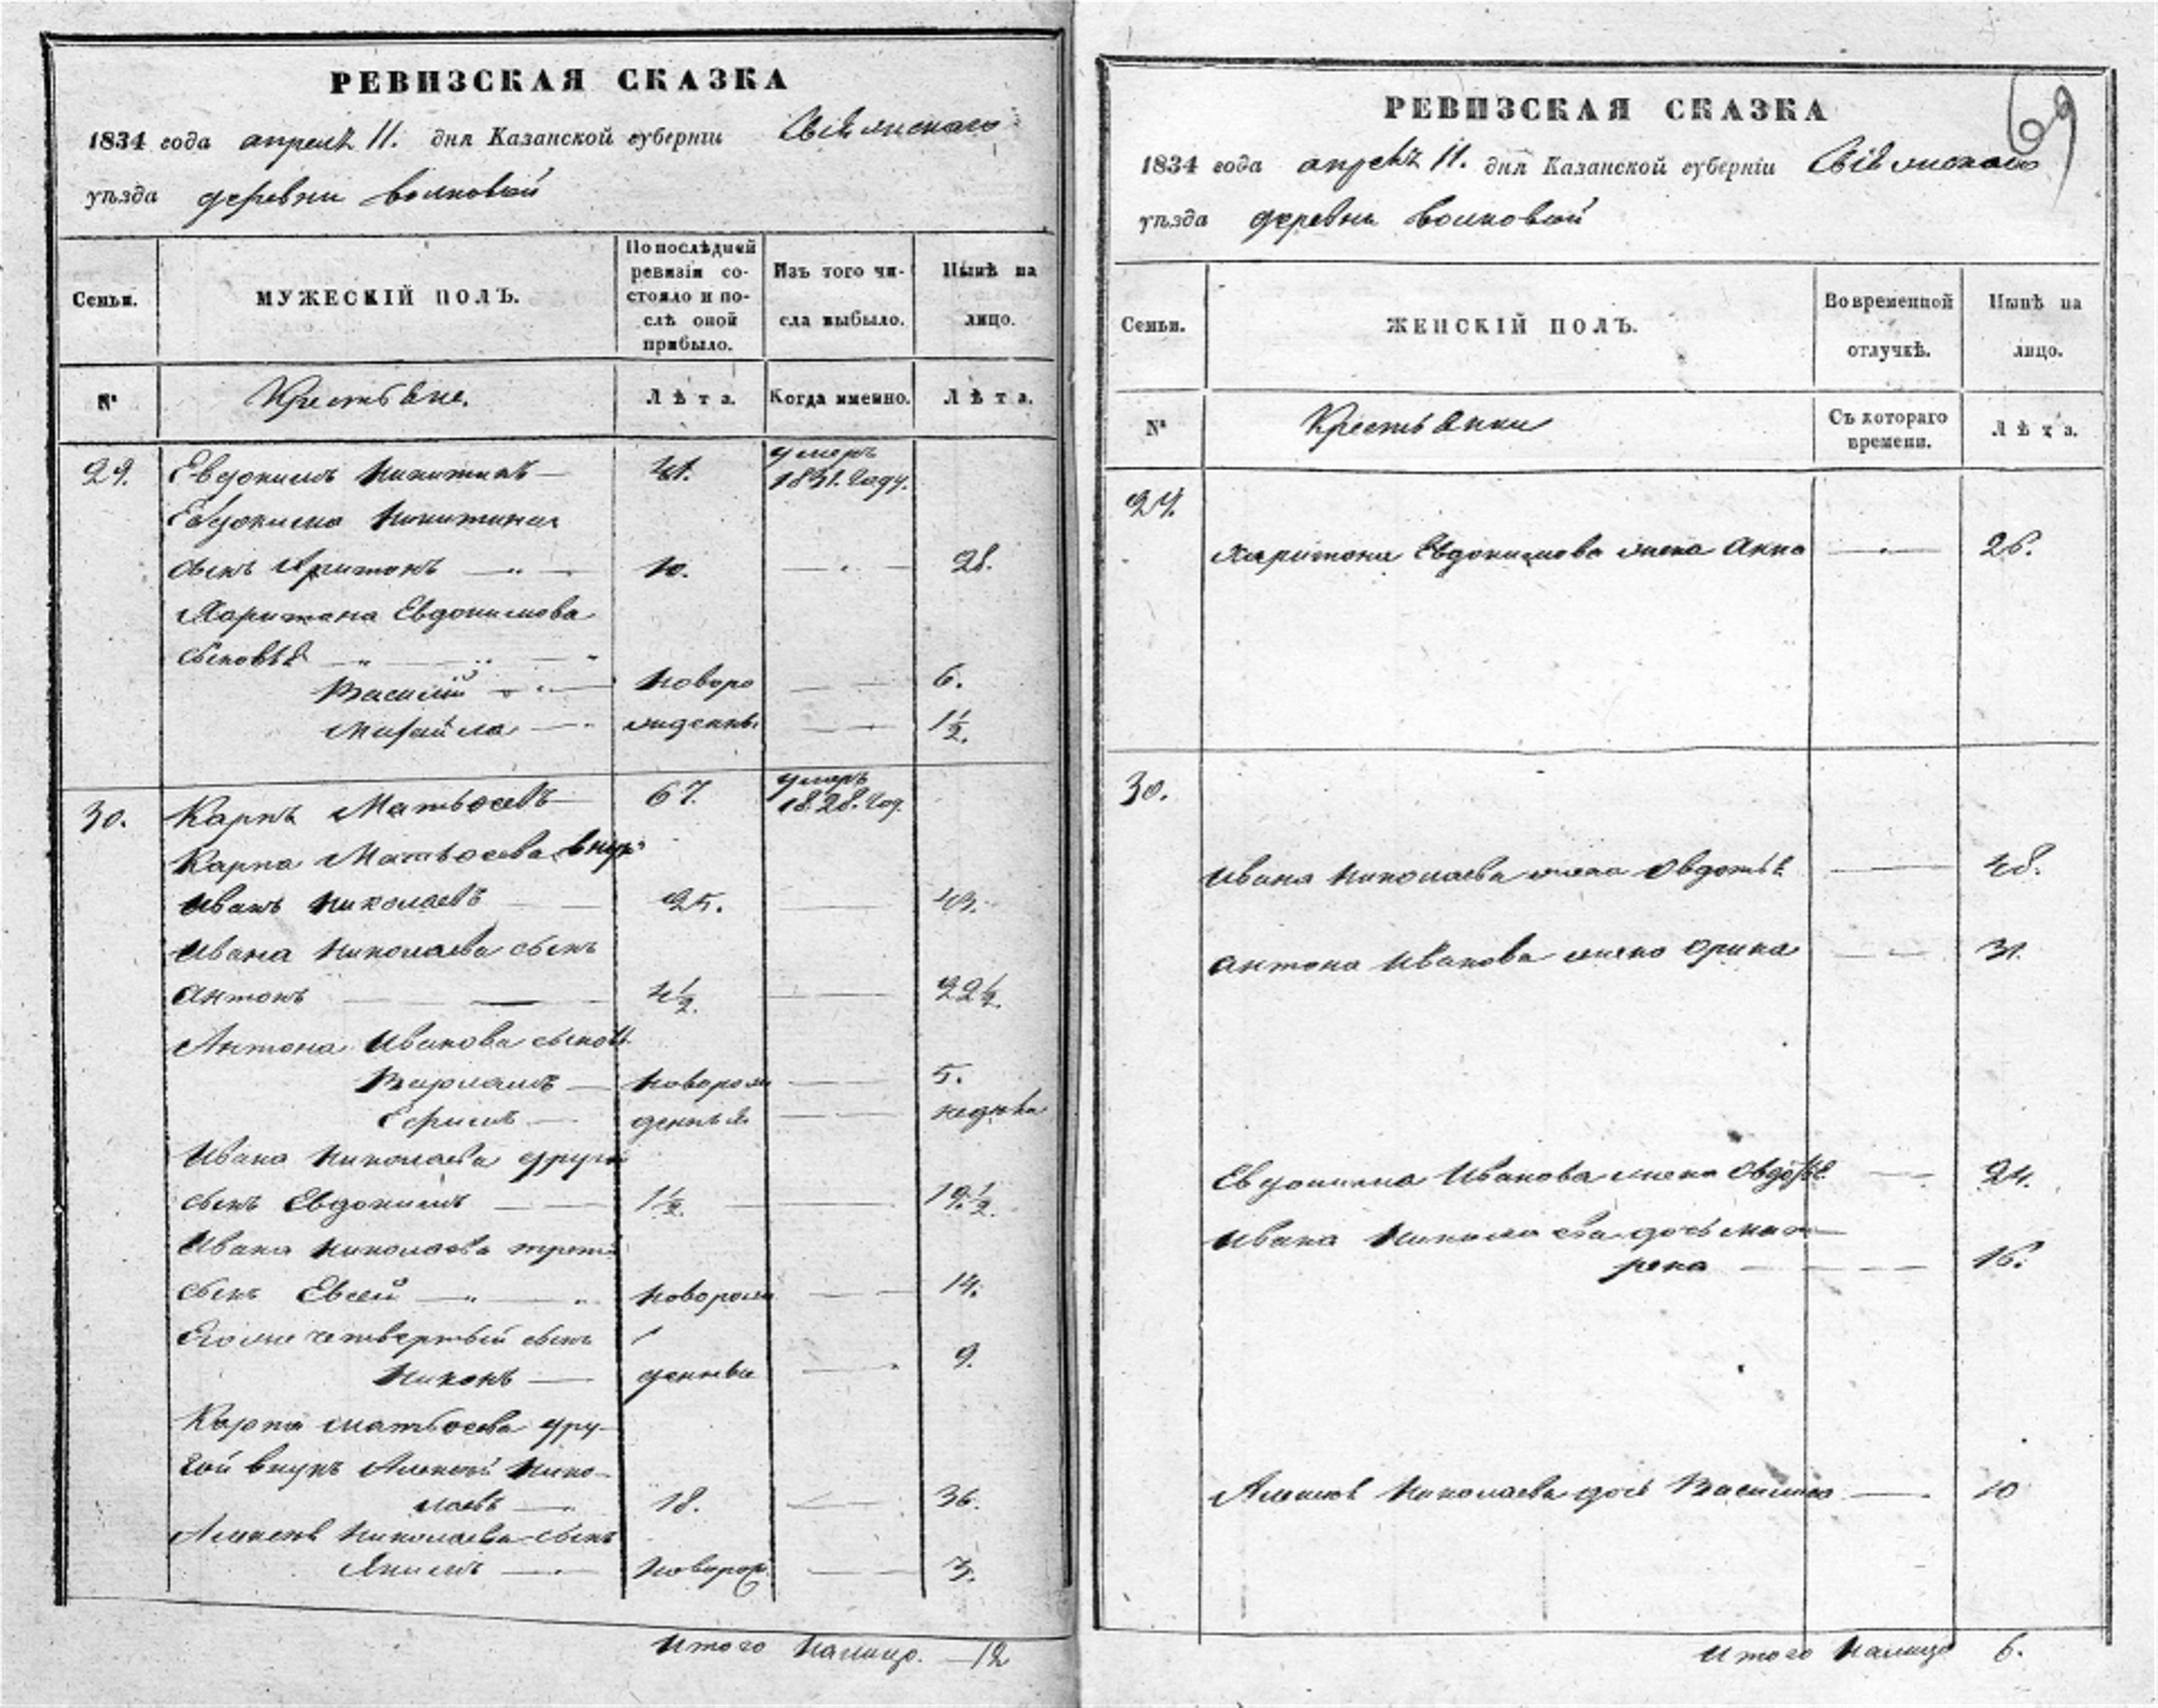 РЕВИЗСКАЯ СКАЗКА
1834 года апреля 11. дня Казанской губерніи Свіяжскаго
уѣзда деревни Волковой
Семьи.
МУЖЕСКІЙ ПОЛЪ.
По послѣдней
ревизіи со-
стояло и по-
слѣ оной
прибыло.
Изъ того чи-
сла выбыло.
Нынѣ на
лицо.
№
Крестьяне.
Лѣта.
Когда именно.
Лѣта.
29. Евдокимъ Никитинъ 41. умеръ 1831. году.
Евдокима Никитина
сынъ Харитонъ 10. 28.
Харитона Евдокимова
сыновья
Василий новоро 6.
Михайла жденны 1½.
30. Карпъ Матвеевъ 67. умеръ 1828. год.
Карпа Матвеева внукъ
Иванъ Николаевъ 25. 43.
Ивана Николаева сынъ
Антонъ 4½. 22½.
Антона Иванова сынов
Варламъ новорож 5.
Ефимъ денныя недѣля
Ивана Николаева другой
сынъ Евдокимъ 1½. 19½.
Ивана Николаева третий
сынъ Евсей новорож 14.
Его же четвертый сынъ
Никонъ денные 9.
Карпа Матвеева дру-
гой внукъ Алексей Нико-
лаевъ 18. 36.
Алексея Николаева сынъ
Якимъ новорож. 3.
Итого налицо. 12
69
РЕВИЗСКАЯ СКАЗКА
1834 года апреля 11. дня Казанской губерніи Свіяжскаго
уѣзда деревни Волковой
Семьи.
ЖЕНСКІЙ ПОЛЪ.
Во временной
отлучкѣ.
Нынѣ на
лицо.
№
Крестьянки
Съ котораго
времени.
Лѣта.
29.
Харитона Евдокимова жена Анна 26.
30.
Ивана Николаева жена Овдотья 48.
Антона Иванова жена Орина 31.
Евдокима Иванова жена Овдотья 24.
Ивана Николаева дочь Мат
рена 16.
Алексея Николаева дочь Василиса 10
Итого налицо 6.